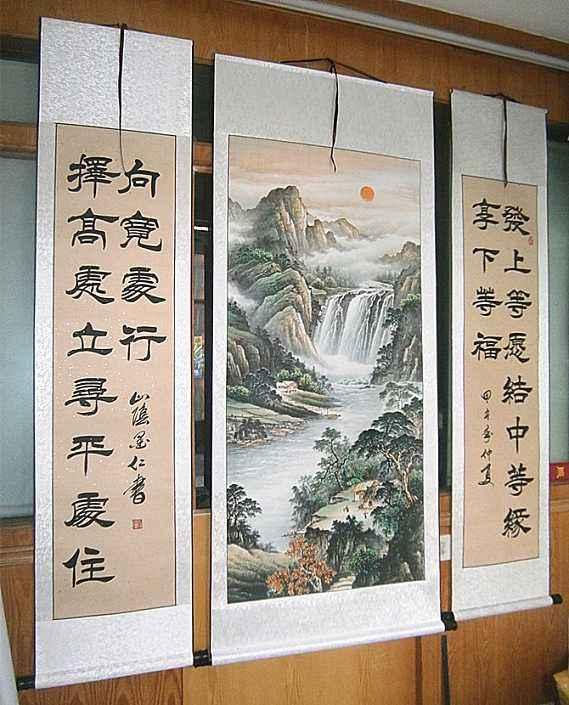 發上等愿結中等緣
享下等福
甲午年仲夏
擇高處立尋平處住
向寬處行
山陰墨仁書